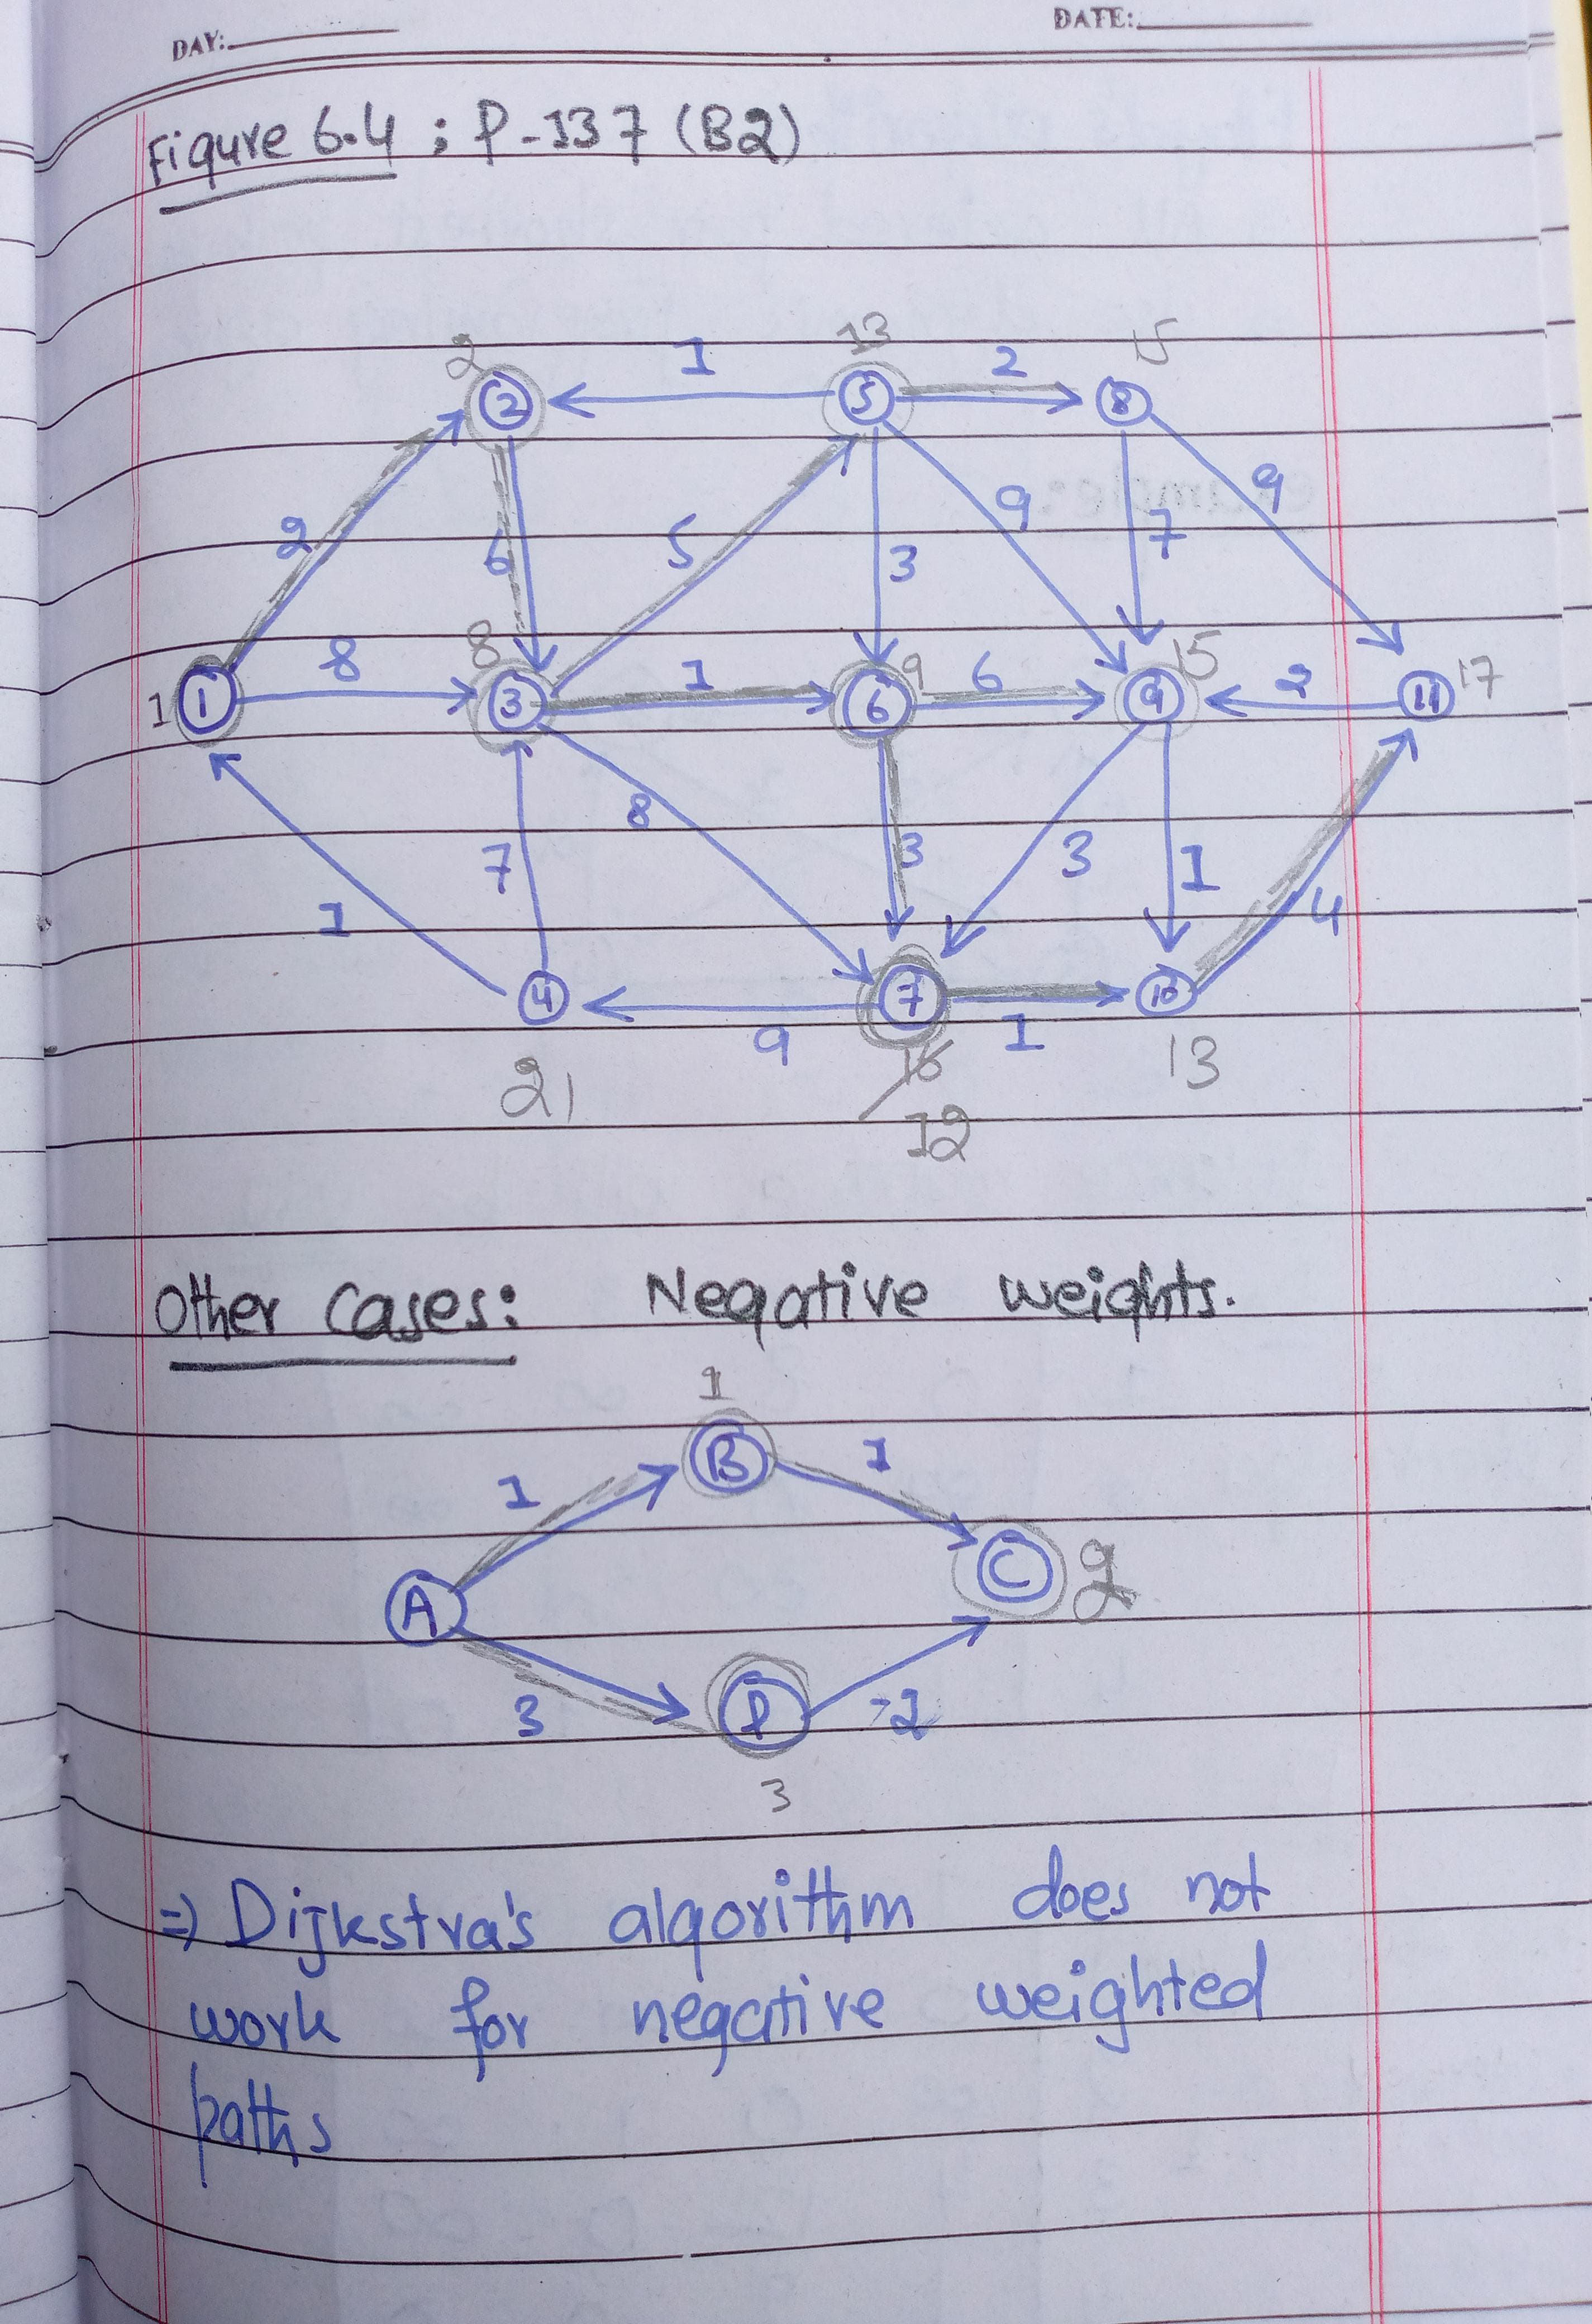 DAY:
DATE:
Figure 6.4 ; P-137 (B2)
2 1 13 2 15
2 5 8
2 6 5 3 9 7 9
1 1 8 8 3 1 6 9 6 9 15 2 11 17
1 7 8 3 3 1 4
4 9 7 1 10
21 16 13
12
Other Cases: Negative weights.
1
1 B 1
A C 2
3 D -2
3
=> Dijkstra's algorithm does not
work for negative weighted
paths